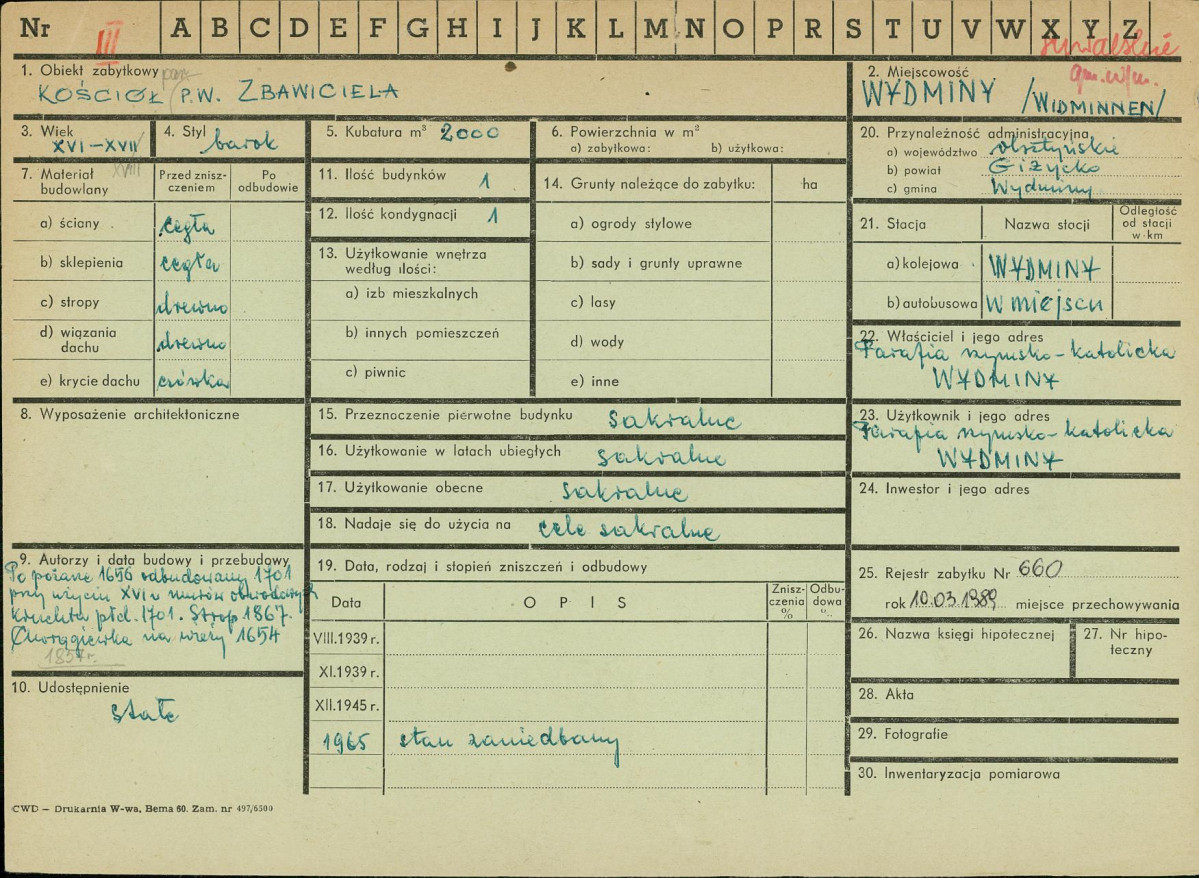 Nr III A B C D E F G H I J K L M N O P R S T U V W X Y Z
suwalskie
gm. w/m.
1. Obiekt zabytkowy par.
KOŚCIÓŁ P.W. ZBAWICIELA
2. Miejscowość
WYDMINY /WIDMINNEN/
3. Wiek
XVI–XVII
XVIII
4. Styl
barok
5. Kubatura m³ 2000
6. Powierzchnia w m²
a) zabytkowa: b) użytkowa:
7. Materiał budowlany
Przed zniszczeniem
Po odbudowie
a) ściany cegła
b) sklepienia cegła
c) stropy drewno
d) wiązania dachu drewno
e) krycie dachu
8. Wyposażenie architektoniczne
9. Autorzy i data budowy i przebudowy
Po pożarze 1656 odbudowany 1701
przy użyciu XVI w murów obwodowych
Kruchta płd. 1701. Strop 1867.
Chorągiewka na wieży 1654
1857r.
10. Udostępnienie
stałe
11. Ilość budynków 1
12. Ilość kondygnacji 1
13. Użytkowanie wnętrza
według ilości:
a) izb mieszkalnych
b) innych pomieszczeń
c) piwnic
14. Grunty należące do zabytku: ha
a) ogrody stylowe
b) sady i grunty uprawne
c) lasy
d) wody
e) inne
15. Przeznaczenie pierwotne budynku sakralne
16. Użytkowanie w latach ubiegłych sakralne
17. Użytkowanie obecne sakralne
18. Nadaje się do użycia na cele sakralne
19. Data, rodzaj i stopień zniszczeń i odbudowy
Data OPIS Zniszczenia % Odbudowa %
VIII.1939 r.
XI.1939 r.
XII.1945 r.
1965 stan zaniedbany
20. Przynależność administracyjna
a) województwo olsztyńskie
b) powiat Giżycko
c) gmina Wydminy
21. Stacja Nazwa stacji Odległość od stacji w km
a) kolejowa WYDMINY
b) autobusowa W miejscu
22. Właściciel i jego adres
Parafia rzymsko-katolicka
WYDMINY
23. Użytkownik i jego adres
Parafia rzymsko-katolicka
WYDMINY
24. Inwestor i jego adres
25. Rejestr zabytku Nr 660
rok 10.03.1989 miejsce przechowywania
26. Nazwa księgi hipotecznej
27. Nr hipoteczny
28. Akta
29. Fotografie
30. Inwentaryzacja pomiarowa
CWD – Drukarnia W-wa, Bema 60. Zam. nr 497/6500